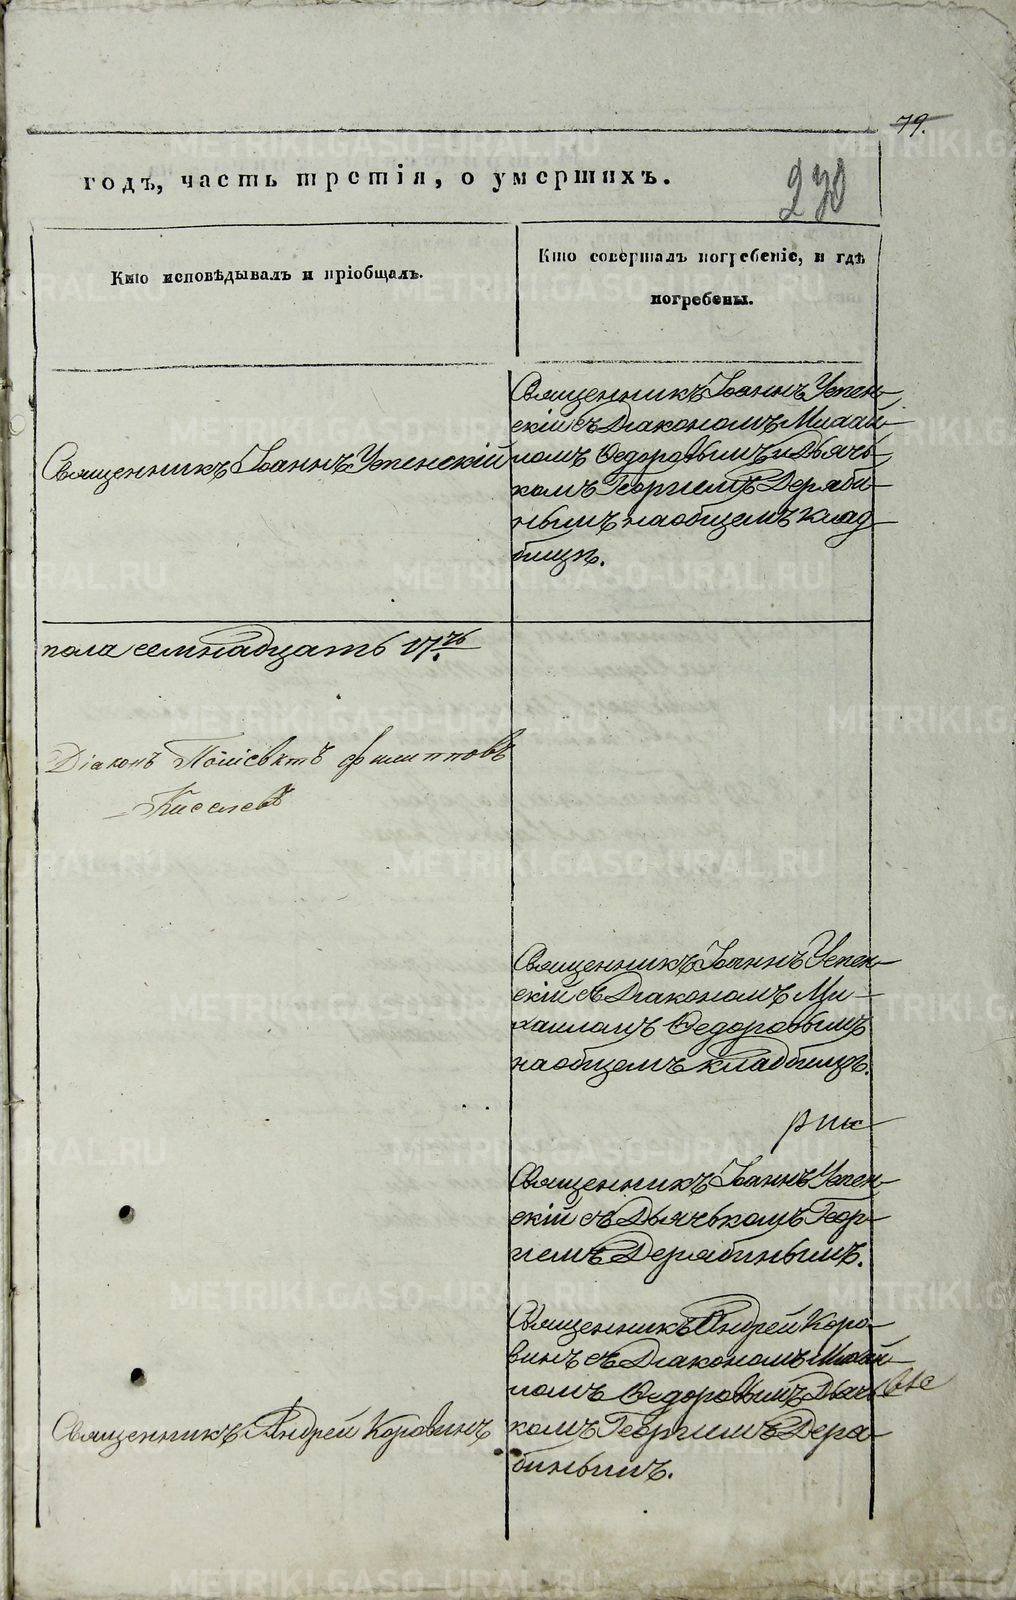 79.
годъ, часть третія, о умершихъ.
230
Кто исповѣдывалъ и пріобщалъ.
Кто совершалъ погребеніе, и гдѣ
погребены.
Священникъ Іоаннъ Успенскій
Священникъ Іоаннъ Успен-
скій съ Діакономъ Михаи-
ломъ Ѳедоровымъ и Дьячь-
комъ Георгіемъ Деряби-
нымъ на общемъ клад-
бищѣ.
пола семнадцать 17.ть
Діаконъ Поліевктъ Филипповъ
Киселевъ
Священникъ Іоаннъ Успен-
скій съ Діакономъ Ми-
хаиломъ Ѳедоровымъ
на общемъ кладбищѣ.
Священникъ Іоаннъ Успен-
скій съ Дьячькомъ Геор-
гіемъ Дерябинымъ.
Священникъ Андрей Коровинъ
Священникъ Андрей Коро-
винъ съ Діакономъ Михаи-
ломъ Ѳедоровымъ Дьячь
комъ Георгіемъ Деря-
бинымъ.
METRIKI.GASO-URAL.RU